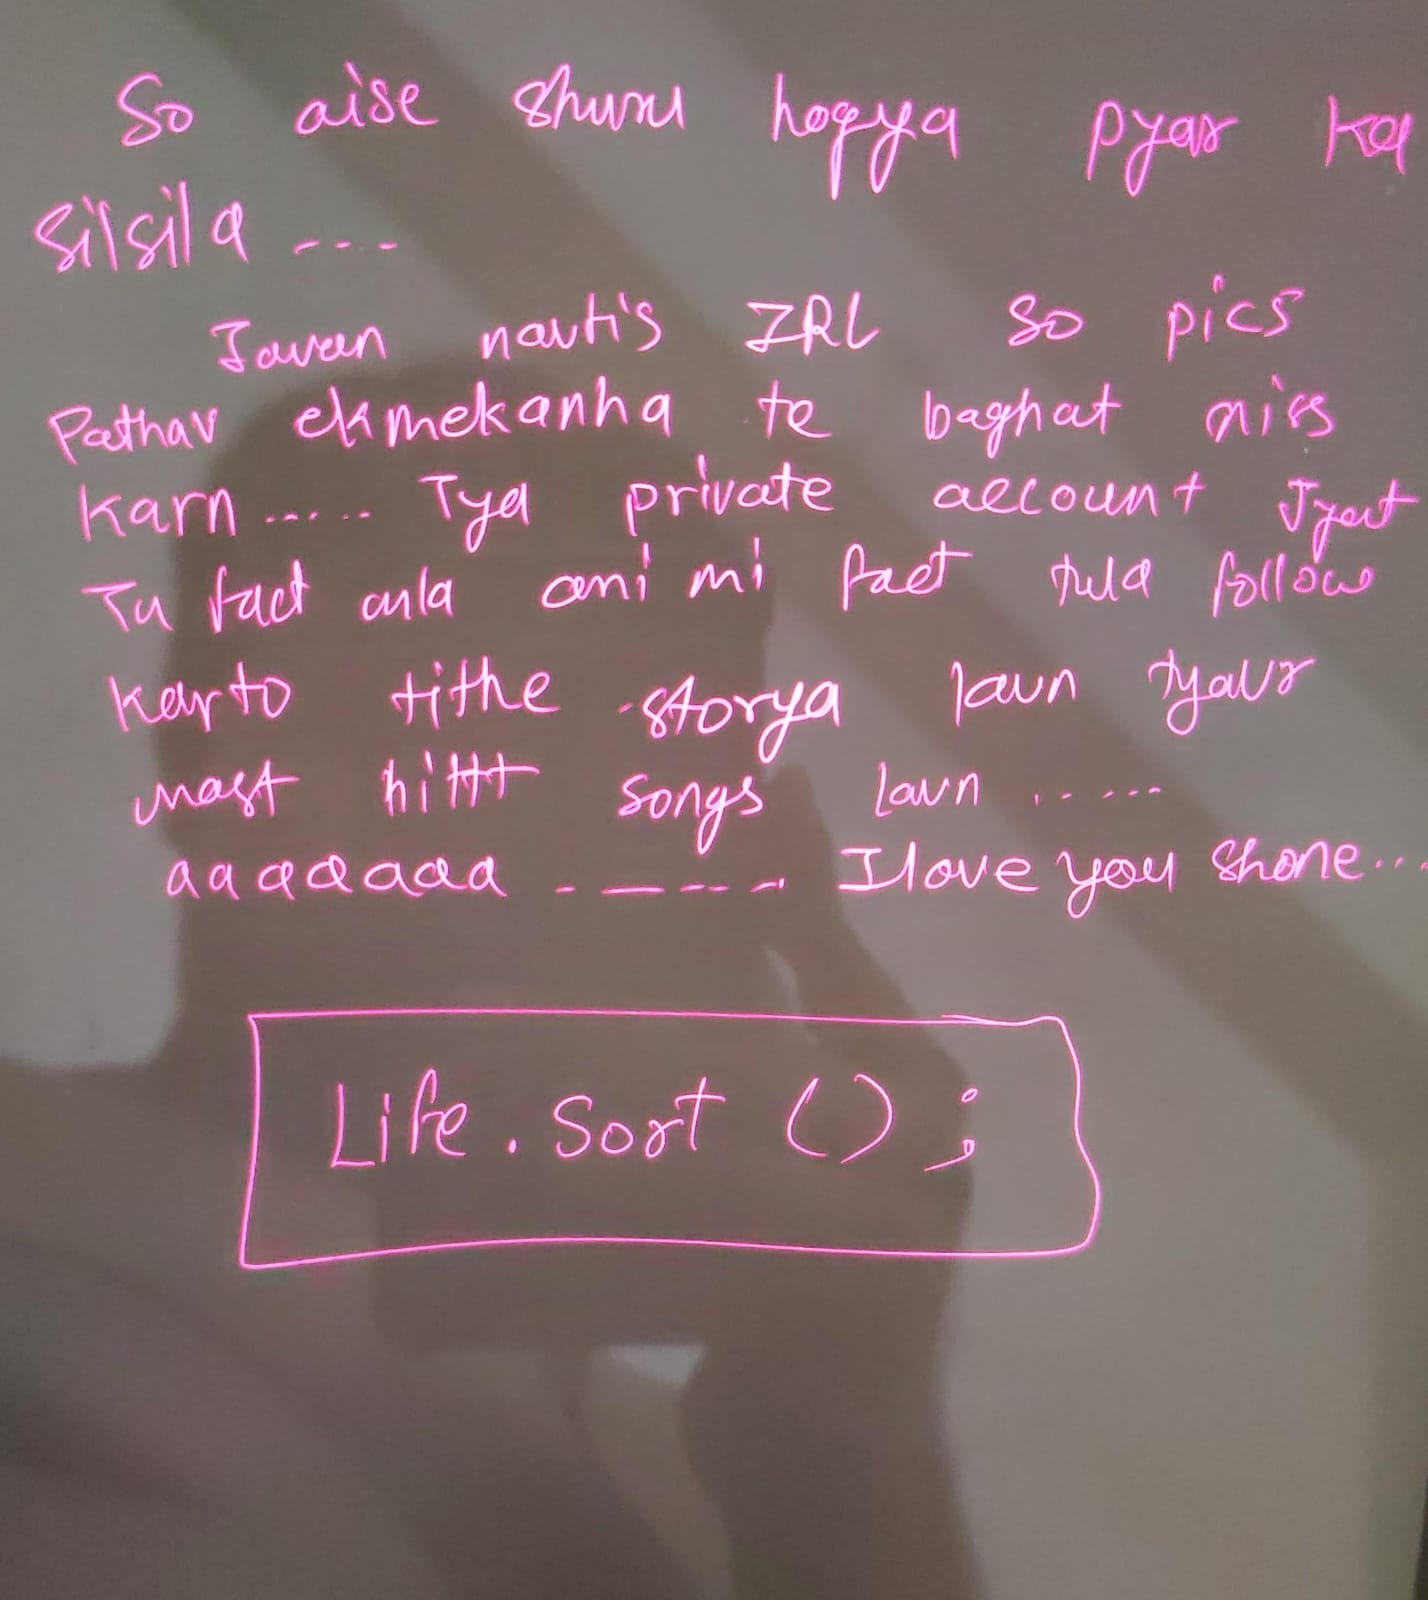 So aise shuru hogya pyar ka
silsila ....
Javan navtis IRL So pics
Pathav ekmekanha te baghat miss
Karn ...... Tya private account Jyat
Tu fact asla ani mi fact tula follow
Karto tithe storya laun tyavr
mast hittt songs lavn ......
aaaaaaa ------ I love you shone...
Life . Sort () ;